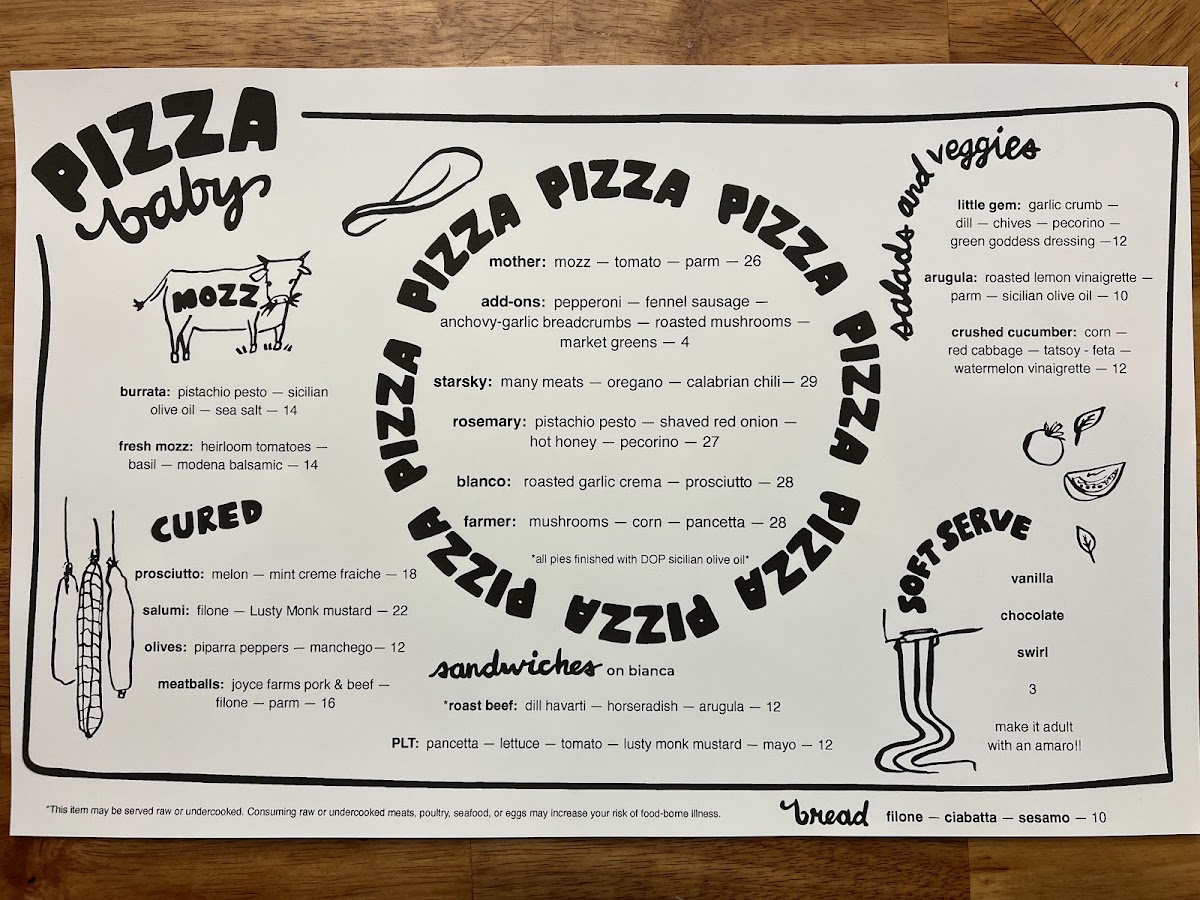 PIZZA
baby
MOZZ
burrata: pistachio pesto — sicilian
olive oil — sea salt — 14
fresh mozz: heirloom tomatoes —
basil — modena balsamic — 14
CURED
prosciutto: melon — mint creme fraiche — 18
salumi: filone — Lusty Monk mustard — 22
olives: piparra peppers — manchego— 12
meatballs: joyce farms pork & beef —
filone — parm — 16
PIZZA PIZZA PIZZA PIZZA PIZZA PIZZA PIZZA PIZZA PIZZA PIZZA
mother: mozz — tomato — parm — 26
add-ons: pepperoni — fennel sausage —
anchovy-garlic breadcrumbs — roasted mushrooms —
market greens — 4
starsky: many meats — oregano — calabrian chili— 29
rosemary: pistachio pesto — shaved red onion —
hot honey — pecorino — 27
blanco: roasted garlic crema — prosciutto — 28
farmer: mushrooms — corn — pancetta — 28
*all pies finished with DOP sicilian olive oil*
sandwiches on bianca
*roast beef: dill havarti — horseradish — arugula — 12
PLT: pancetta — lettuce — tomato — lusty monk mustard — mayo — 12
salads and veggies
little gem: garlic crumb —
dill — chives — pecorino —
green goddess dressing —12
arugula: roasted lemon vinaigrette —
parm — sicilian olive oil — 10
crushed cucumber: corn —
red cabbage — tatsoy - feta —
watermelon vinaigrette — 12
SOFT SERVE
vanilla
chocolate
swirl
3
make it adult
with an amaro!!
*This item may be served raw or undercooked. Consuming raw or undercooked meats, poultry, seafood, or eggs may increase your risk of food-borne illness.
bread filone — ciabatta — sesamo — 10